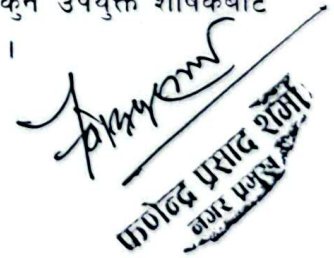 कुन उपयुक्त शीर्षकबाट
।
फणीन्द्र प्रसाद शर्मा
नगर प्रमुख